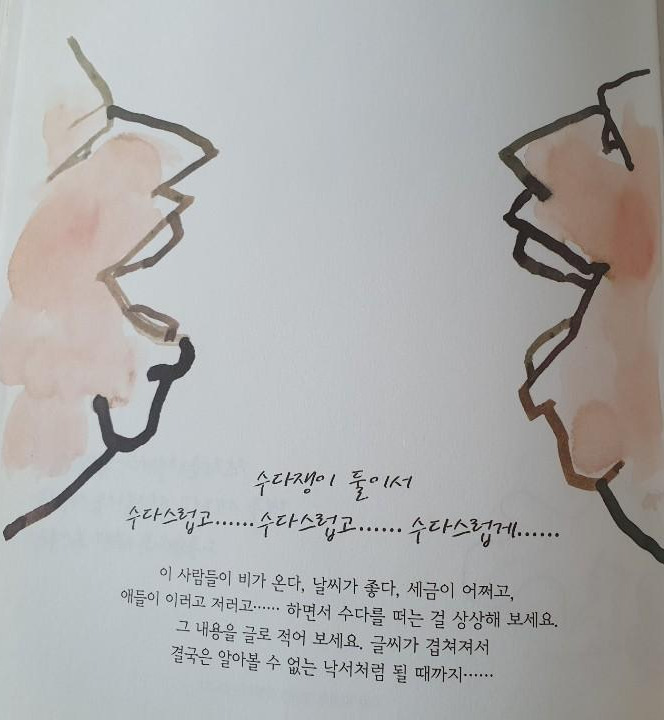 수다쟁이 둘이서
수다스럽고……수다스럽고…… 수다스럽게……
이 사람들이 비가 온다, 날씨가 좋다, 세금이 어쩌고,
애들이 이러고 저러고…… 하면서 수다를 떠는 걸 상상해 보세요.
그 내용을 글로 적어 보세요. 글씨가 겹쳐져서
결국은 알아볼 수 없는 낙서처럼 될 때까지……